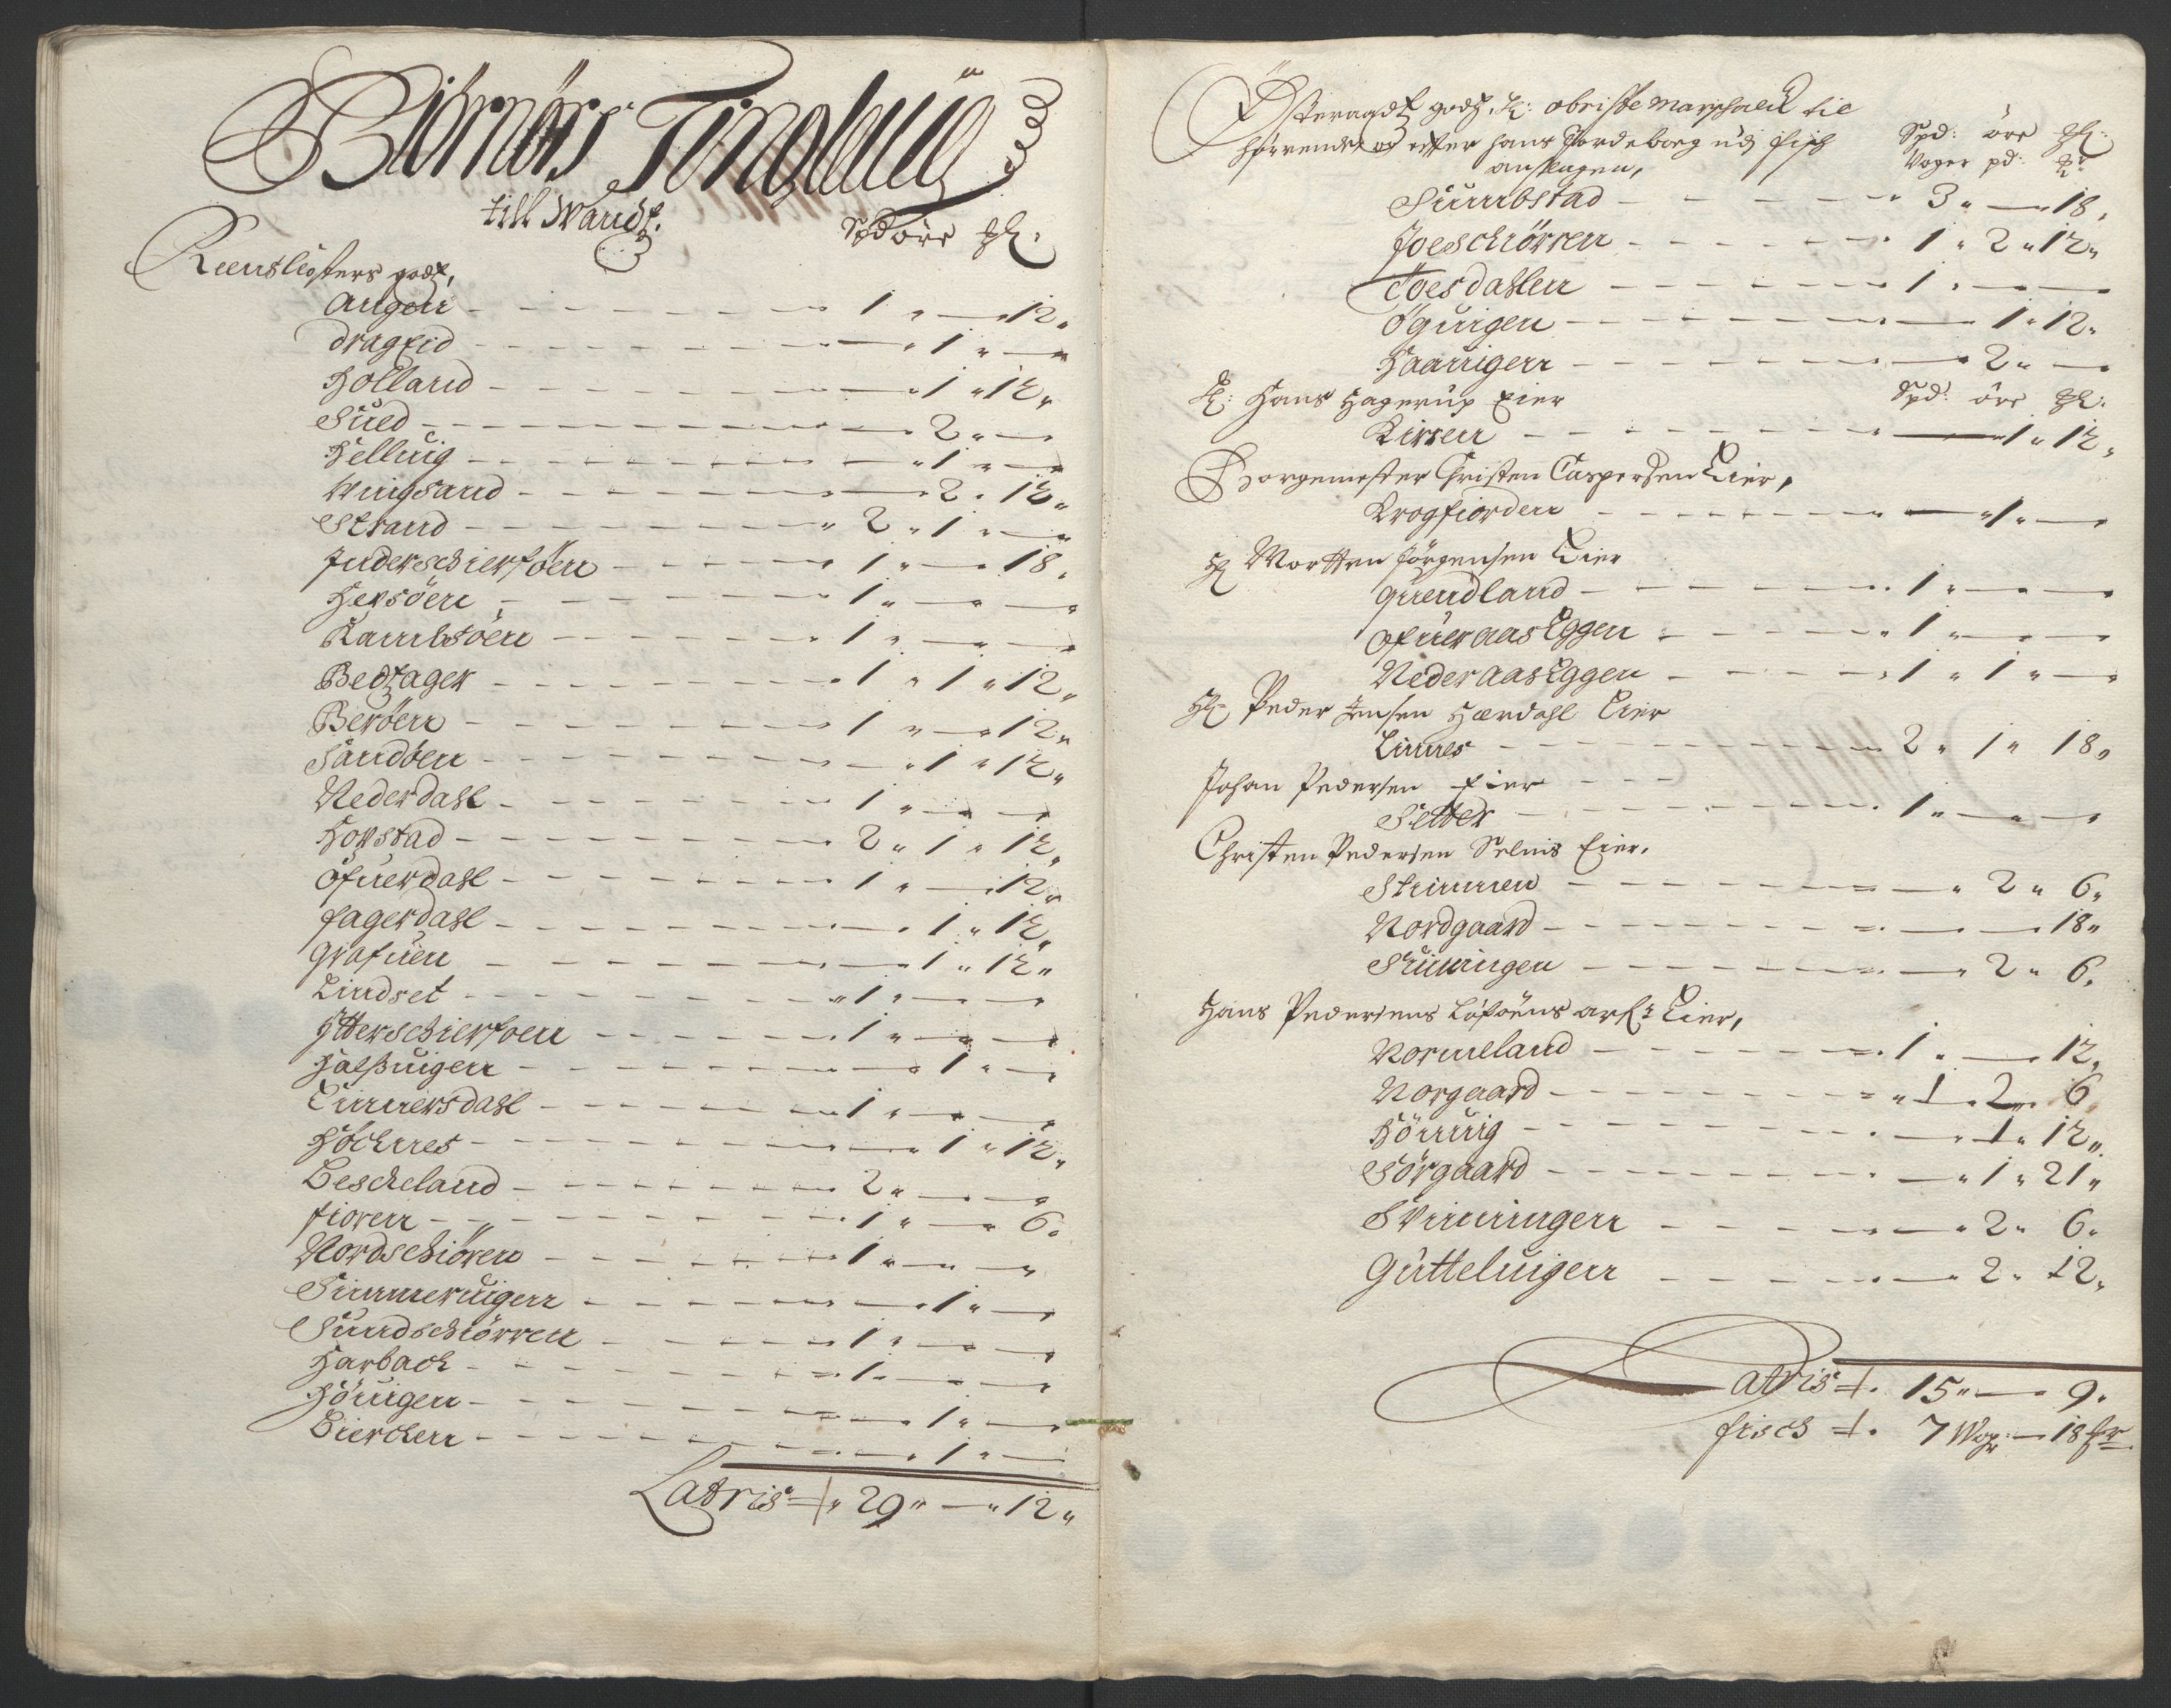 Biörnörs Tinglaug
till Wands.
Spd öre ꝑl:
Reensclosters godz,
Angen - 1 " — 12 "
dragEid - — " 1 " —
Holland - — " 1 " 12 "
Sued - — 2 " —
Helluig - — " 1 " —
Wingsand - — 2 " 12 "
Strand - " 2 " 1 " —
Inderschierföen - 1 " — 18 "
Hepsöen - 1 " — —
Kambsöen - 1 " — —
Bedzager - 1 " 1 " 12 "
Beröen - 1 " — 12 "
Sandöen - — " 1 " 12 "
Nederdahl - 1 " — —
Hopstad - 2 " 1 " 12 "
Ofuerdahl - 1 " — 12 "
fagerdahl - — 1 " 12 "
Grafuen - — 1 " 12 "
Lindset - " 1 " — —
Ytterschierfoen - 1 " — —
Halsuigen - — 1 " —
Einnersdahl - 1 " — —
Höchnes - — 1 " 12 "
Bescheland - 2 " — —
fioren - 1 " — 6 "
Nordschiören - 1 " — —
Simmeruigen - — 1 " —
Sundschiörren - 1 " — —
Harbach - 1 " — —
Höuigen - — 1 " —
Biercken - — " 1 " —
Latris " 29 " — " 12 "
Østeraadtz godz, H: obriste Marschalck til
hörende og efter hans Jordeborg udj fisch
anslagen,
Spd: öre ꝑl:
Woger pd:
Sumbstad - 3 " — 18 "
Joeschiörren - 1 " 2 " 12 "
Toesdahlen - 1 " — —
Øguigen - — 1 " 12 "
Haarrigen - — 2 " —
Hr: Hans Hagerup Eier
Spd: öre ꝑl:
Kirren - — 1 " 12 "
Borgemester Christen Caspersen Eier,
Krogfiorden - — " 1 " —
Hr Mortten Jörgensen Eier
Quendland - 1 " — —
ofuer aasEggen - " 1 " — —
Neder aasEggen - 1 " 1 " —
Hr Peder Jensen Hærdahl Eier
Linnes - 2 " 1 " 18 "
Johan Pedersen Eier - - -
Setter - 1 " — —
Christen Pedersen Selnis Eier,
Strimmen - — " 2 " 6 "
Nordgaard - — — 18 "
Suiningen - — " 2 " 6 "
Hans Pedersens Löföens arf: Eier,
Normeland - 1 " — 12 "
Norgaard - " 1 " 2 " 6
Hönnig - — " 1 " 12 "
Sörgaard - — " 1 " 21 "
Svinningen - — " 2 " 6 "
Gutteluigen - — " 2 " 12 "
Latris 15 " — " 9 "
fisch 7 Wog: — 18 ꝑr